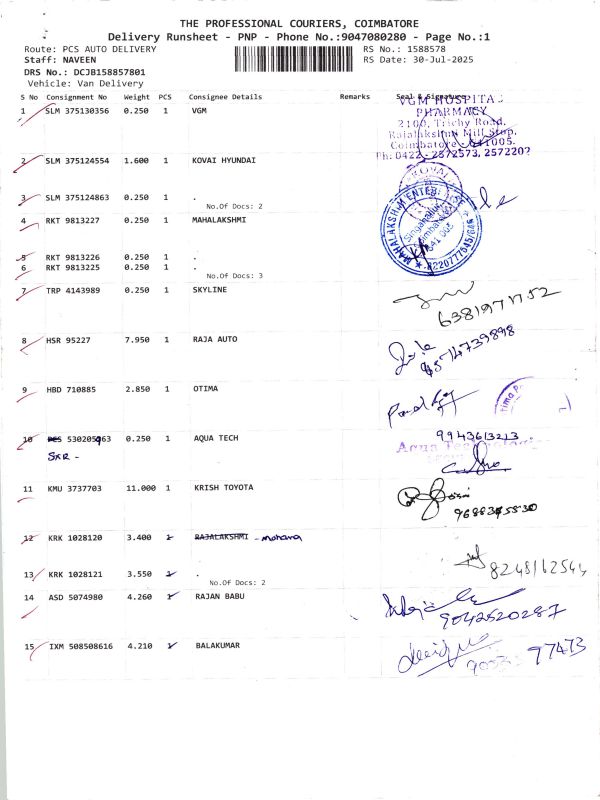 THE PROFESSIONAL COURIERS, COIMBATORE
Delivery Runsheet - PNP - Phone No.:9047080280 - Page No.:1
Route: PCS AUTO DELIVERY RS No.: 1588578
Staff: NAVEEN RS Date: 30-Jul-2025
DRS No.: DCJB158857801
Vehicle: Van Delivery
S No Consignment No Weight PCS Consignee Details Remarks Seal & Signature
1 SLM 375130356 0.250 1 VGM
VGM HOSPITAL
PHARMACY
2100, Trichy Road,
Rajalakshmi Mill Stop,
Coimbatore - 641005.
Ph: 0422 - 2572573, 2572202
2 SLM 375124554 1.600 1 KOVAI HYUNDAI
KOVAI
3 SLM 375124863 0.250 1 .
No.Of Docs: 2
4 RKT 9813227 0.250 1 MAHALAKSHMI
MAHALAKSHMI ENTERPRISE
Singanallur
Coimbatore
641 005
5 RKT 9813226 0.250 1 .
6 RKT 9813225 0.250 1 .
No.Of Docs: 3
7 TRP 4143989 0.250 1 SKYLINE
8 HSR 95227 7.950 1 RAJA AUTO
9 HBD 710885 2.850 1 OTIMA
10 530205963 0.250 1 AQUA TECH
SKR -
9943613213
Aqua Technologies
11 KMU 3737703 11.000 1 KRISH TOYOTA
12 KRK 1028120 3.400 1 RAJALAKSHMI - mohana
13 KRK 1028121 3.550 1 .
8248162544
No.Of Docs: 2
14 ASD 5074980 4.260 1 RAJAN BABU
9042520287
15 IXM 508508616 4.210 1 BALAKUMAR
77473